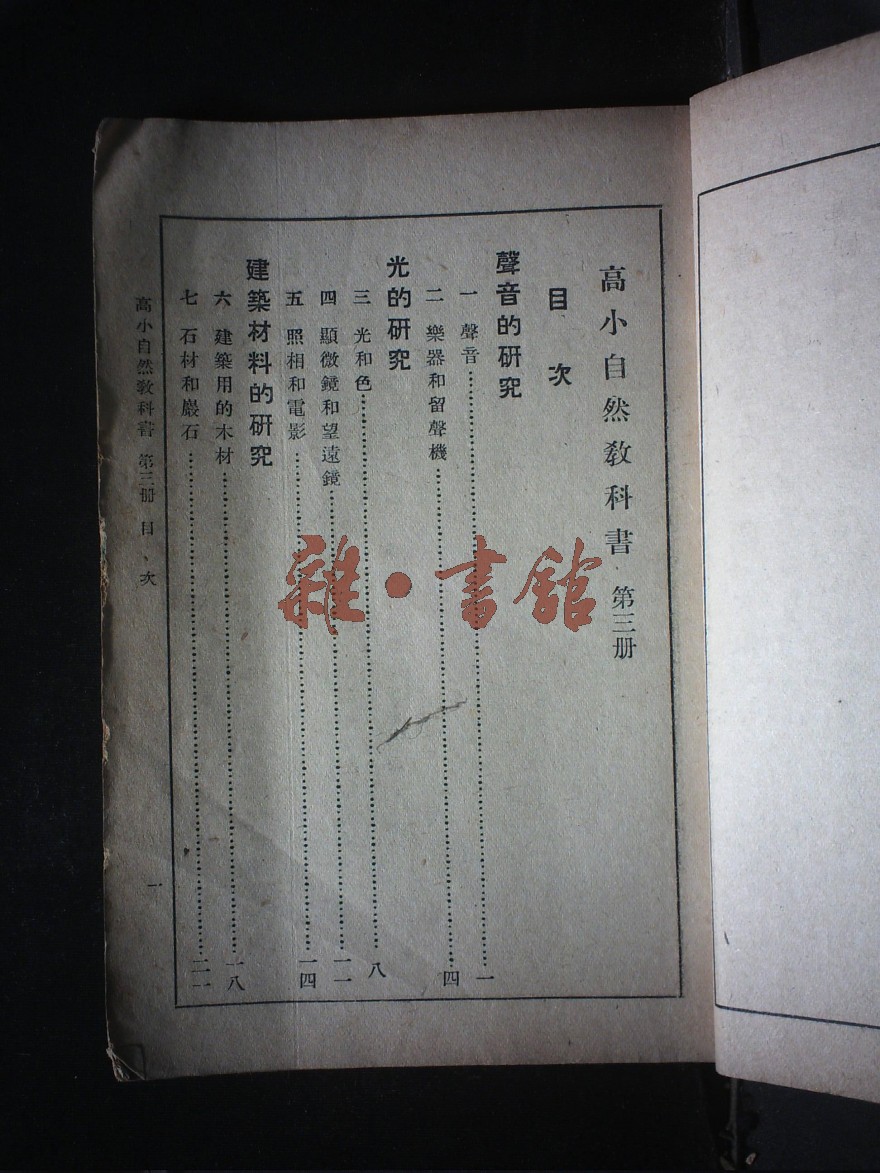 高小自然教科書 第三册
目次
聲音的研究
一 聲音……一
二 樂器和留聲機……四
光的研究
三 光和色……八
四 顯微鏡和望遠鏡……一一
五 照相和電影……一四
建築材料的研究
六 建築用的木材……一八
七 石材和巖石……二一
高小自然教科書 第三册 目、次 一
雜·書館